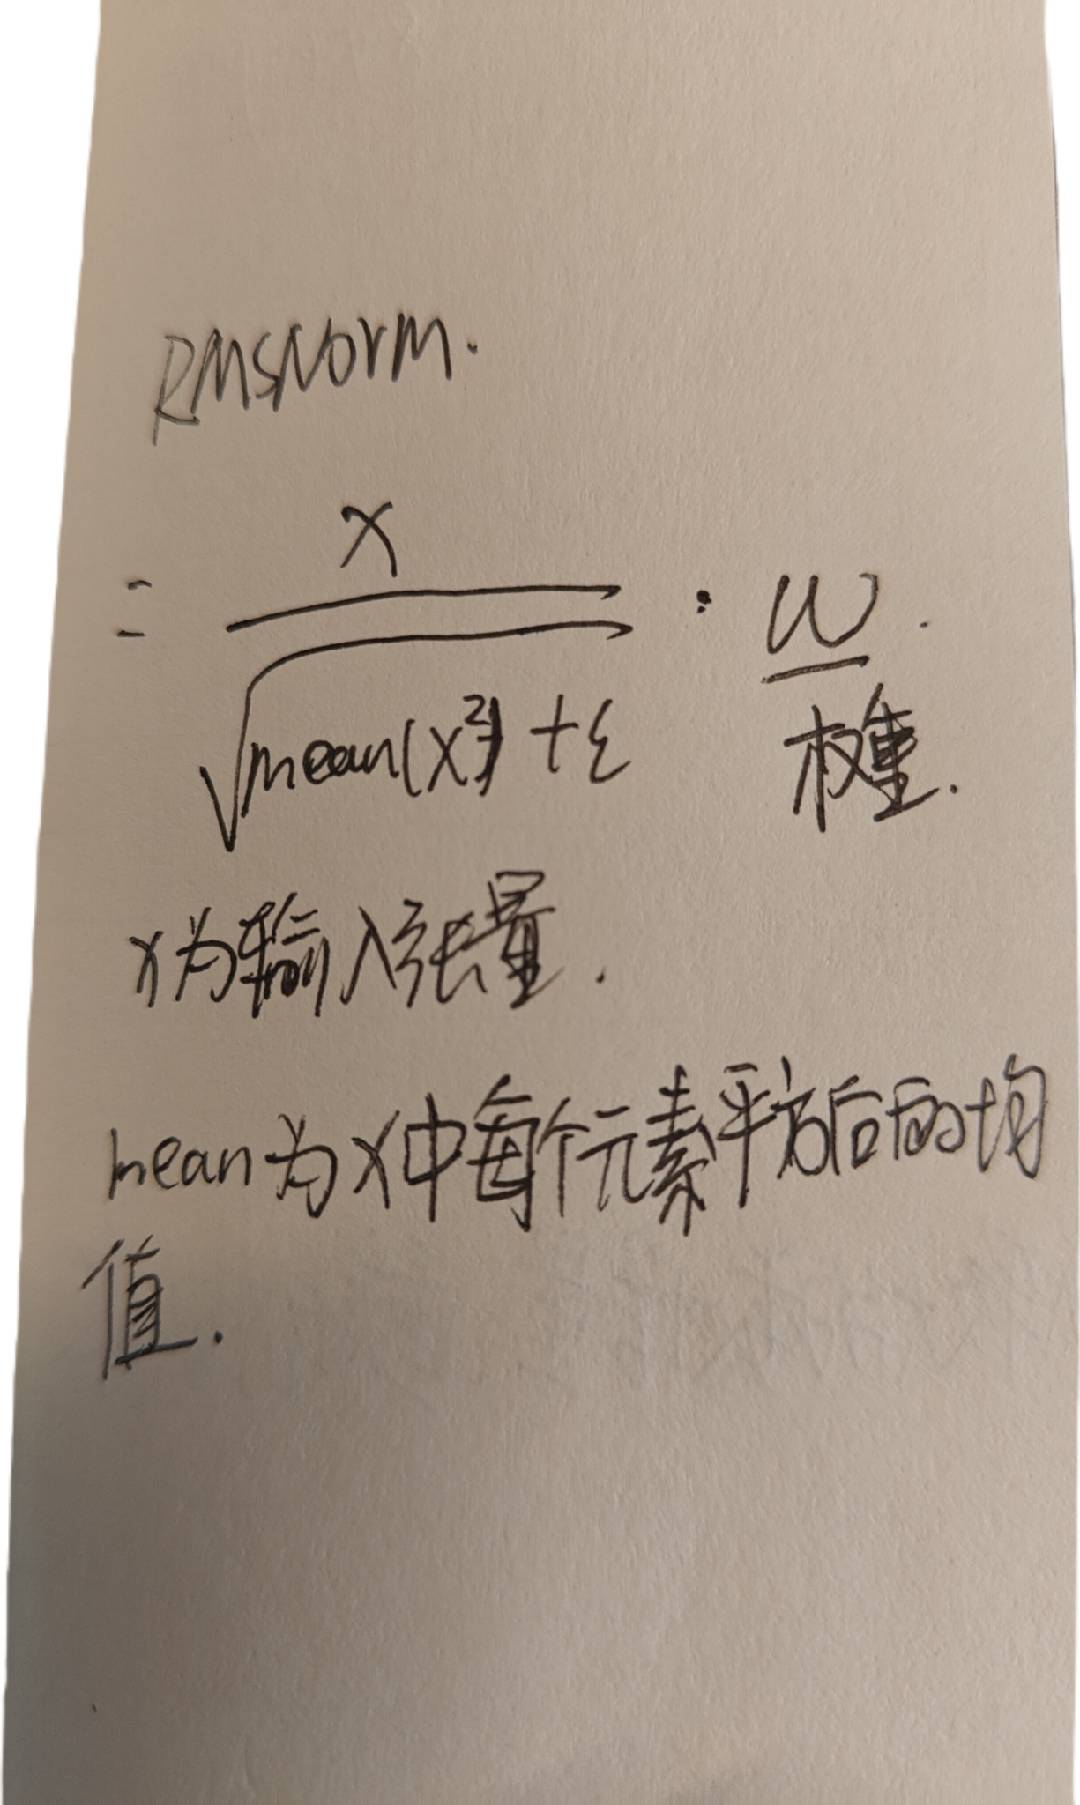 RMSNorm.
= x / √(mean(x²) + ε) · w.
权重.
x为输入张量.
mean为x中每个元素平方后的均
值.